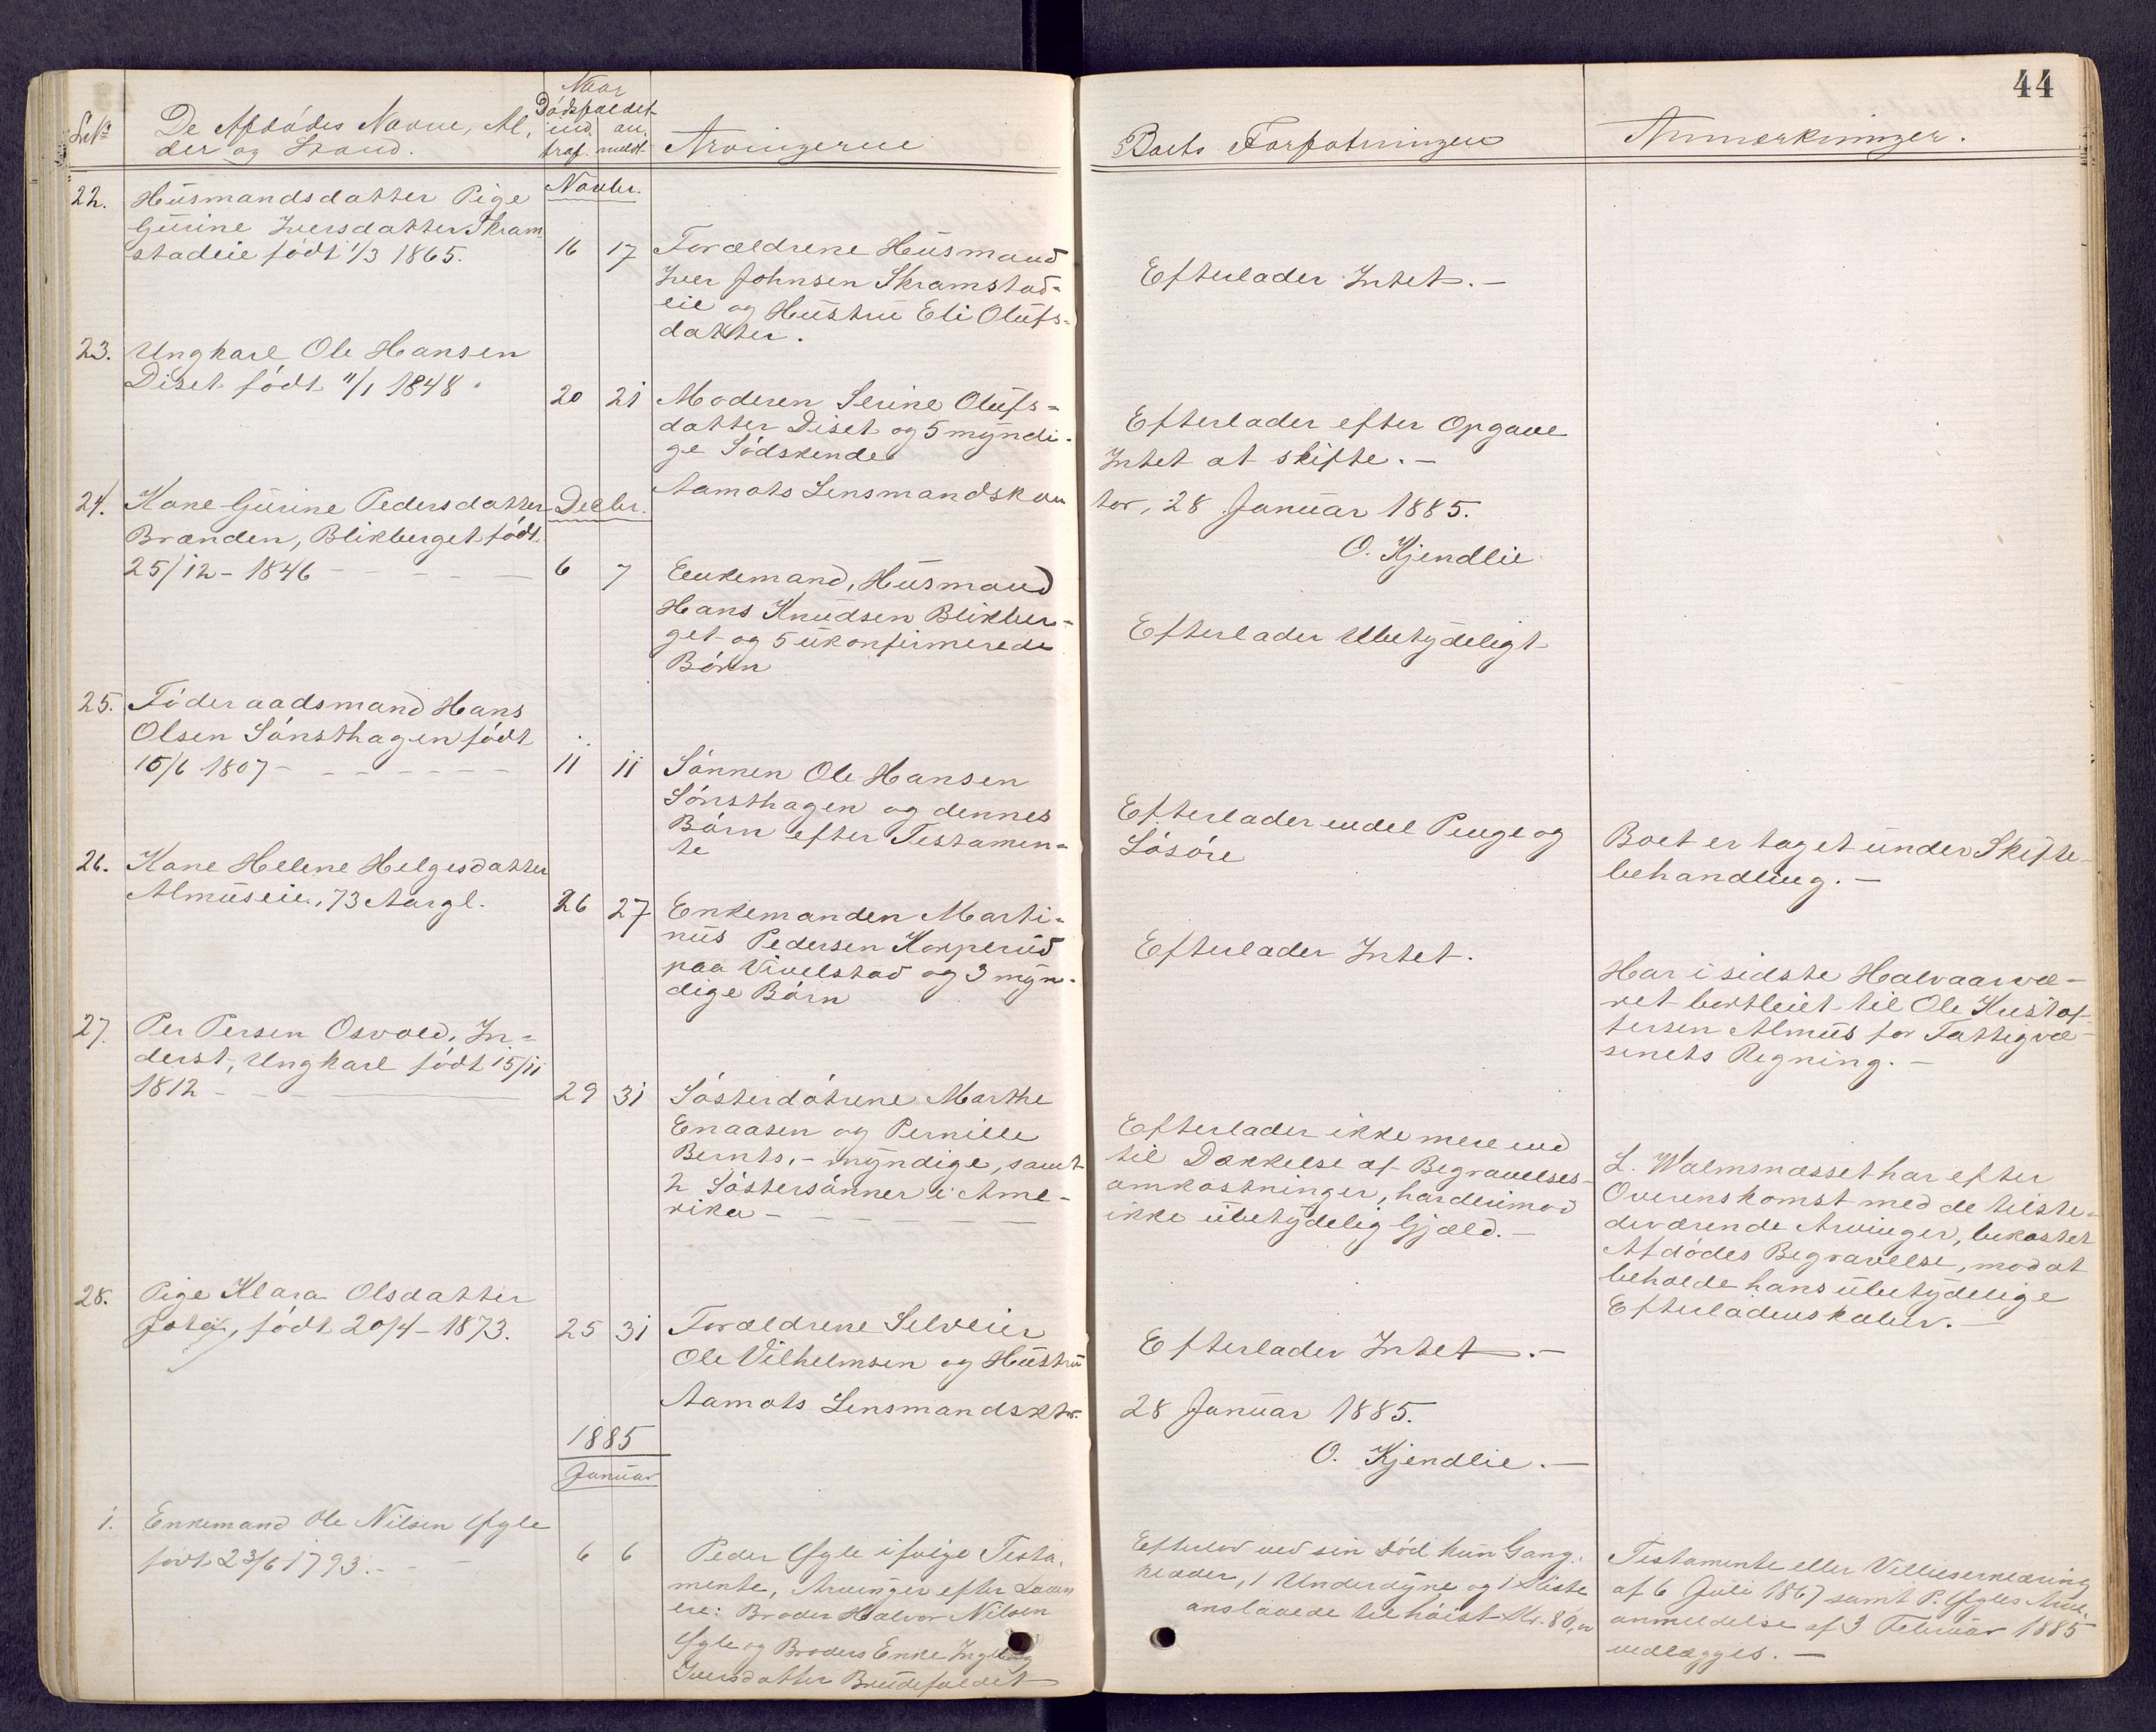 44
Naar
Dödsfaldet
LNo
De Afdödes Navne, Al,
der og Stand.
ind.
traf.
an.
meldt
Arvingerne
Boets Forfatninger
Anmærkninger.
Novbr.
22.
Husmandsdatter Pige
Gurine Iversdatter Skram
stadeie født 1/3 1865.
16
17
Forældrene Husmand
Iver Johnsen Skramstad-
eie og Hustru Eli Olufs-
datter.
Efterlader Intet.-
23.
Ungkarl Ole Hansen
Diset født 11/1 1848.
20
21
Moderen Serine Olufs-
datter Diset og 5 myndi-
ge Södskende
Efterlader efter Opgave
Intet at skifte.-
Aamots Lensmandskon
tor, 28 Januar 1885.
O. Kjendlie
24.
Kone Gurine Pedersdatter
Brænden, Blikberget født
25/12 - 1846
Decbr.
6
7
Enkemand, Husmand
Hans Knudsen Blikber-
get og 5 ukonfirmerede
Börn
Efterlader Ubetydeligt
25.
Föderaadsmand Hans
Olsen Sónsthagen född
15/6 1807
11
11
Sönnen Ole Hansen
Sónsthagen og dennes
Börn efter Testamen-
te
Efterlader endel Penge og
Lösöre
Boet er taget under Skifte-
behandling.-
26.
Kone Helene Helgesdatter
Almuseie, 73 Aargl.
26
27
Enkemanden Marti-
nus Pedersen Korperud
paa Vivelstad og 3 myn-
dige Börn
Efterlader Intet.
Har i sidste Halvaar væ-
ret bortleiet til Ole Kristof
fersen Almus for Fattigvæ-
senets Regning.-
27.
Per Persen Osvold, In-
derst, Ungkarl født 15/11
1812
29
31
Sösterdötrene Marthe
Enaasen og Pernille
Bernts,- myndige, samt
2 Söstersönner i Ame-
rika
Efterlader ikke mere end
til Dækkelse af Begravelses-
omkostninger, har derimod
ikke ubetydelig Gjæld.-
L. Walmsnæsset har efter
Overenskomst med de tilste-
deværende Arvinger, bekostet
Afdödes Begravelse, mod at
beholde hans ubetydelige
Efterladenskaber.-
28.
Pige Klara Olsdatter
født 20/4 - 1873.
25
31
Forældrene Selveier
Ole Vilhelmsen og Hustru
Efterlader Intet.-
Aamots Lensmandsktr.
28 Januar 1885.
O. Kjendlie.-
1885
Januar
1.
Enkemand Ole Nilsen Ygle
født 23/6 1793.-
6
6
Peder Ygle ifølge Testa-
mente, Arvinger efter Loven
ere: Broder Halvor Nilsen
Ygle og Broders Enke Ingeborg
Iversdatter Breidefaldet
Efterlod ved sin Död kun Gang-
klæder, 1 Underdyne og 1 Kiste
anslaaede til höist Kr. 80,00
Testamente eller Villieserklæring
af 6 Juli 1867 samt P. Ygles Arve-
anmeldelse af 3 Februar 1885
vedlægges.-